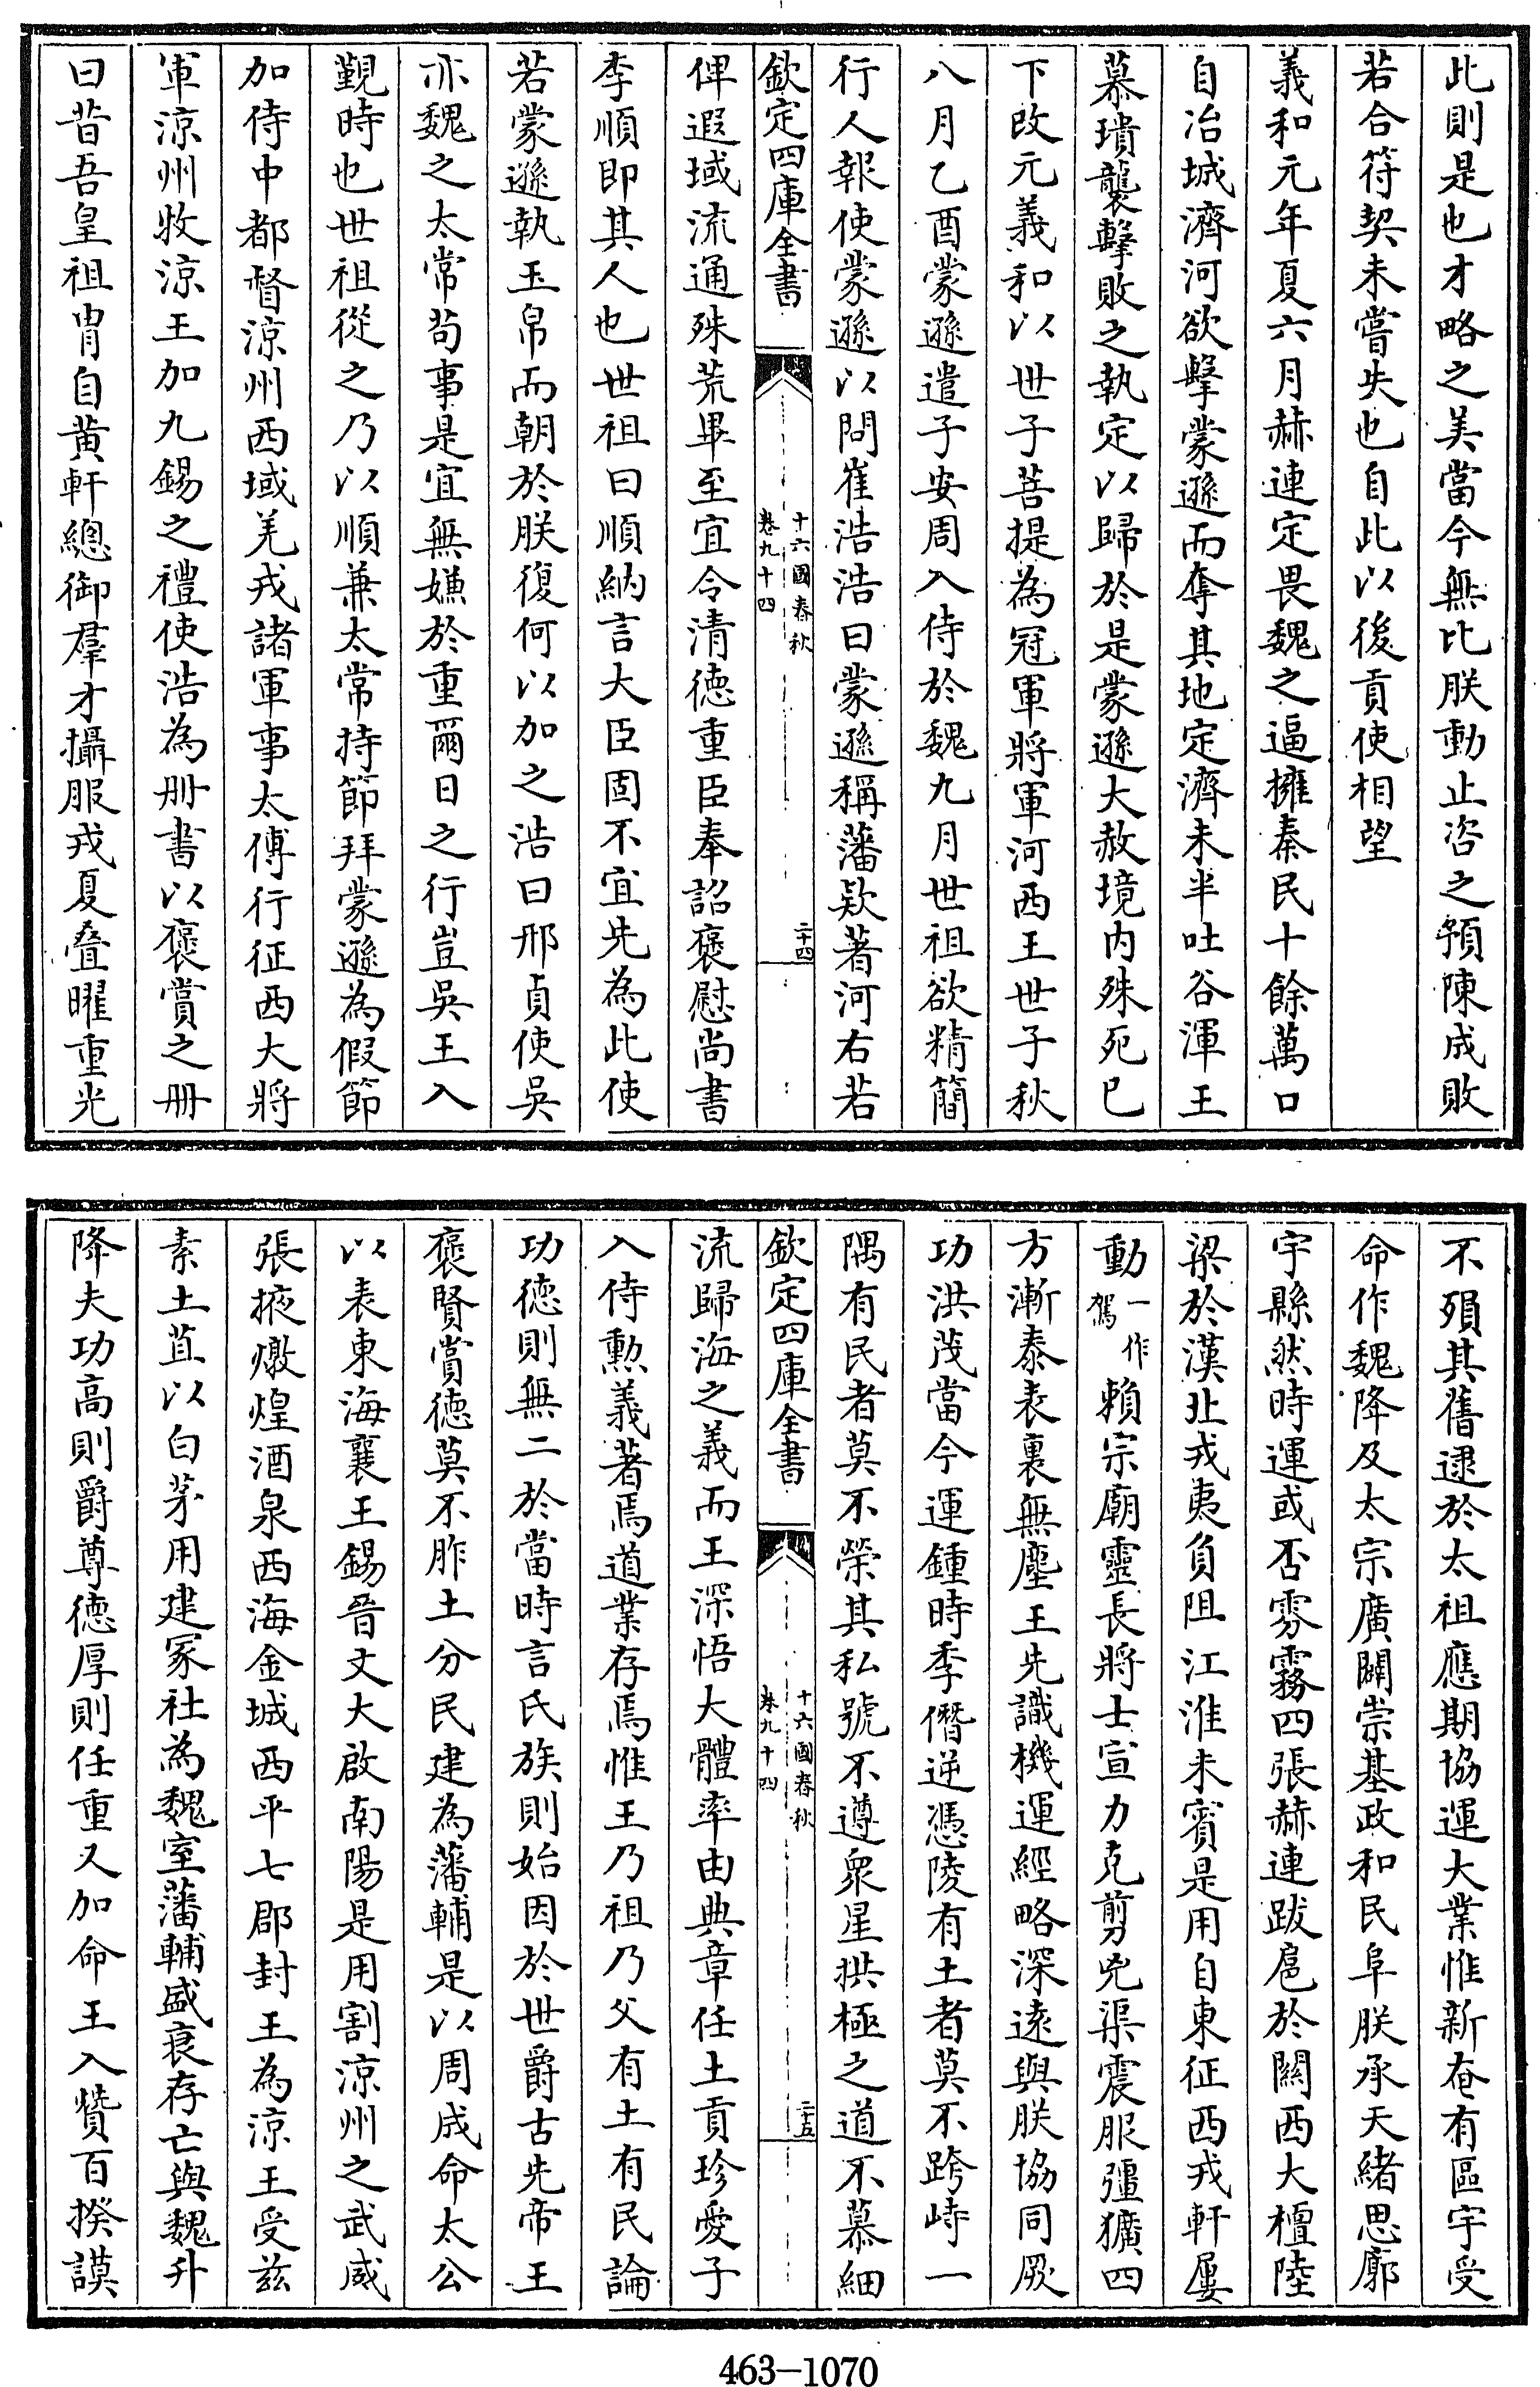 此則是也才略之美當今無比朕動止咨之預陳成敗
若合符契未嘗失也自此以後貢使相望
義和元年夏六月赫連定畏魏之逼擁秦民十餘萬口
自冶城濟河欲擊蒙遜而奪其地定濟未半吐谷渾王
慕璝襲擊敗之執定以歸於是蒙遜大赦境内殊死已
下改元義和以世子菩提為冠軍將軍河西王世子秋
八月乙酉蒙遜遣子安周入侍於魏九月世祖欲精簡
行人報使蒙遜以問崔浩浩曰蒙遜稱藩款著河右若
欽定四庫全書
十六國春秋
卷九十四
二十四
俾遐域流通殊荒畢至宜令清德重臣奉詔褒慰尚書
李順即其人也世祖曰順納言大臣固不宜先為此使
若蒙遜執玉帛而朝於朕復何以加之浩曰邢貞使吳
亦魏之太常茍事是宜無嫌於重爾日之行豈吳王入
覲時也世祖從之乃以順兼太常持節拜蒙遜為假節
加侍中都督涼州西域羌戎諸軍事太傅行征西大將
軍涼州牧涼王加九錫之禮使浩為冊書以褒賞之冊
曰昔吾皇祖胄自黄軒總御羣才攝服戎夏叠曜重光
不殞其舊逮於太祖應期協運大業惟新奄有區宇受
命作魏降及太宗廣闢崇基政和民阜朕承天緒思廓
宇縣然時運或否雰霧四張赫連跋扈於關西大檀陸
梁於漠北戎夷負阻江淮未賓是用自東征西戎軒屢
動一作駕賴宗廟靈長將士宣力克剪兇渠震服彊獷四
方漸泰表裏無塵王先識機運經略深遠與朕協同厥
功洪茂當今運鍾時季僭逆憑陵有土者莫不跨峙一
隅有民者莫不榮其私號不遵眾星拱極之道不慕細
欽定四庫全書
十六國春秋
卷九十四
二十五
流歸海之義而王深悟大體率由典章任土貢珍愛子
入侍勲義著焉道業存焉惟王乃祖乃父有土有民論
功德則無二於當時言氏族則始因於世爵古先帝王
褒賢賞德莫不胙土分民建為藩輔是以周成命太公
以表東海襄王錫晉文大啟南陽是用割涼州之武威
張掖燉煌酒泉西海金城西平七郡封王為涼王受兹
素土苴以白茅用建冢社為魏室藩輔盛衰存亡與魏升
降夫功高則爵尊德厚則任重又加命王入贊百揆謨
463-1070